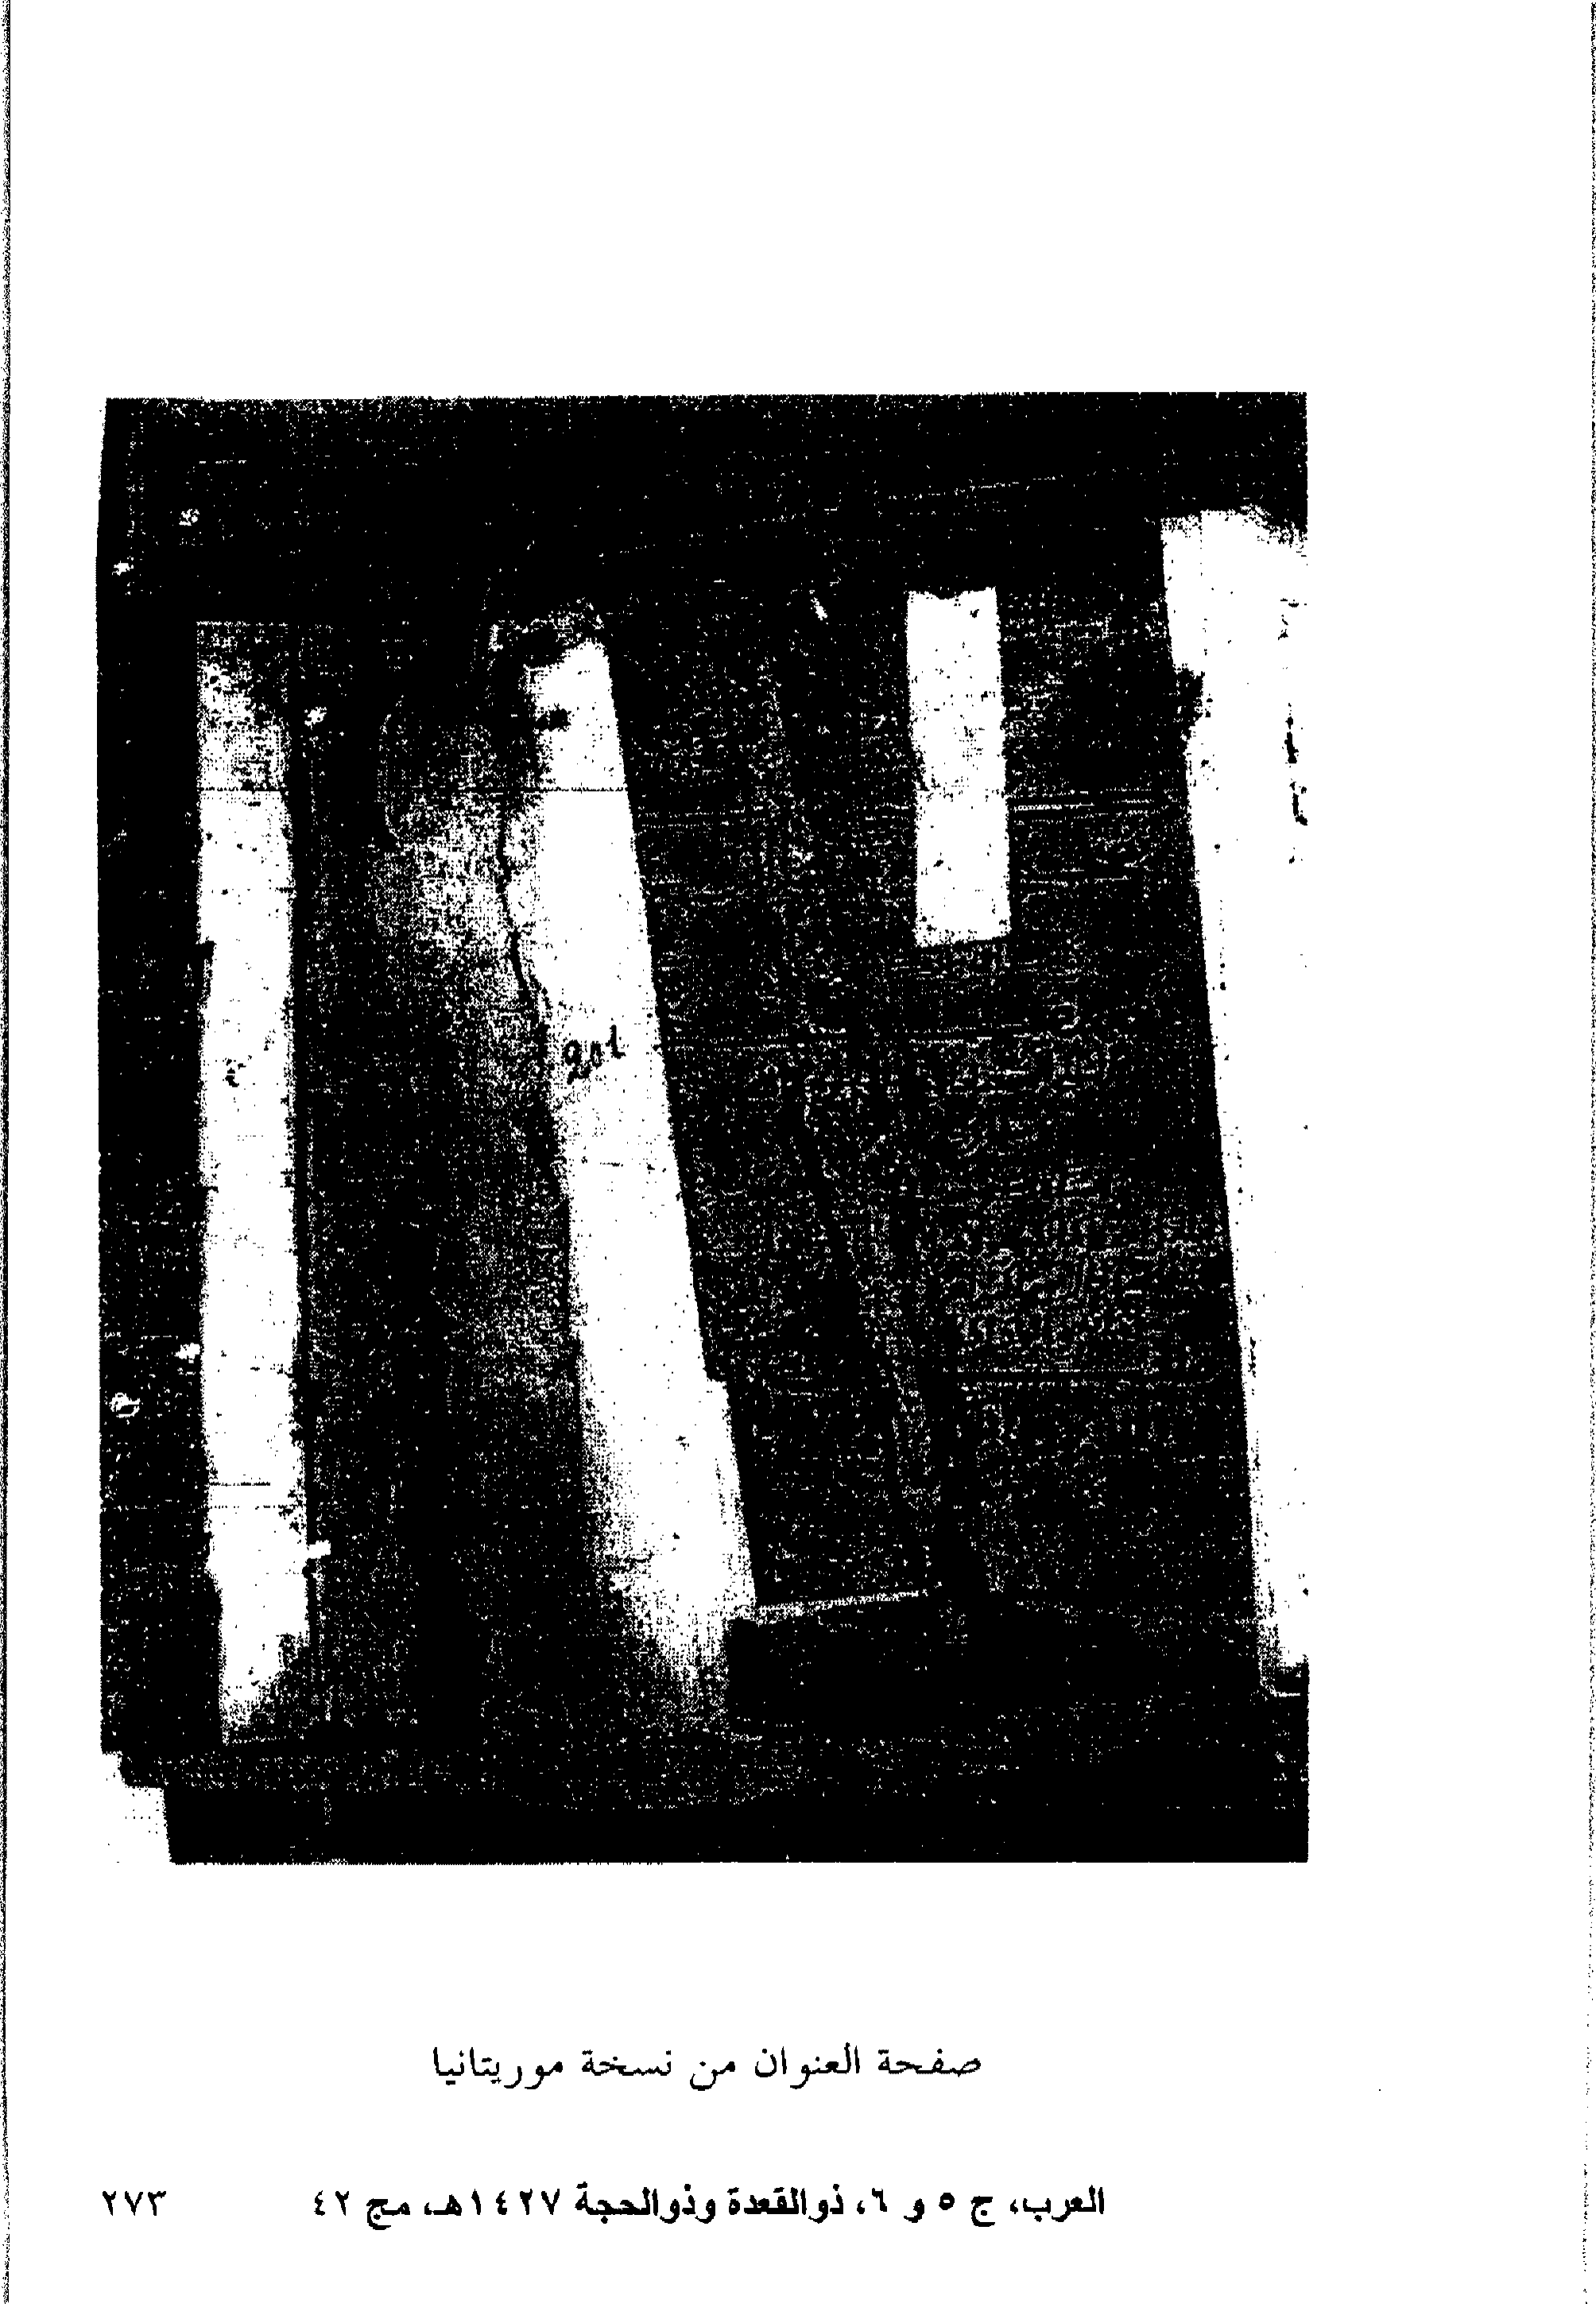 201
صفحة العنوان من نسخة موريتانيا
العرب، ج ٥ و ٦، ذوالقعدة وذوالحجة ١٤٢٧هـ، مج ٤٢
٢٧٣